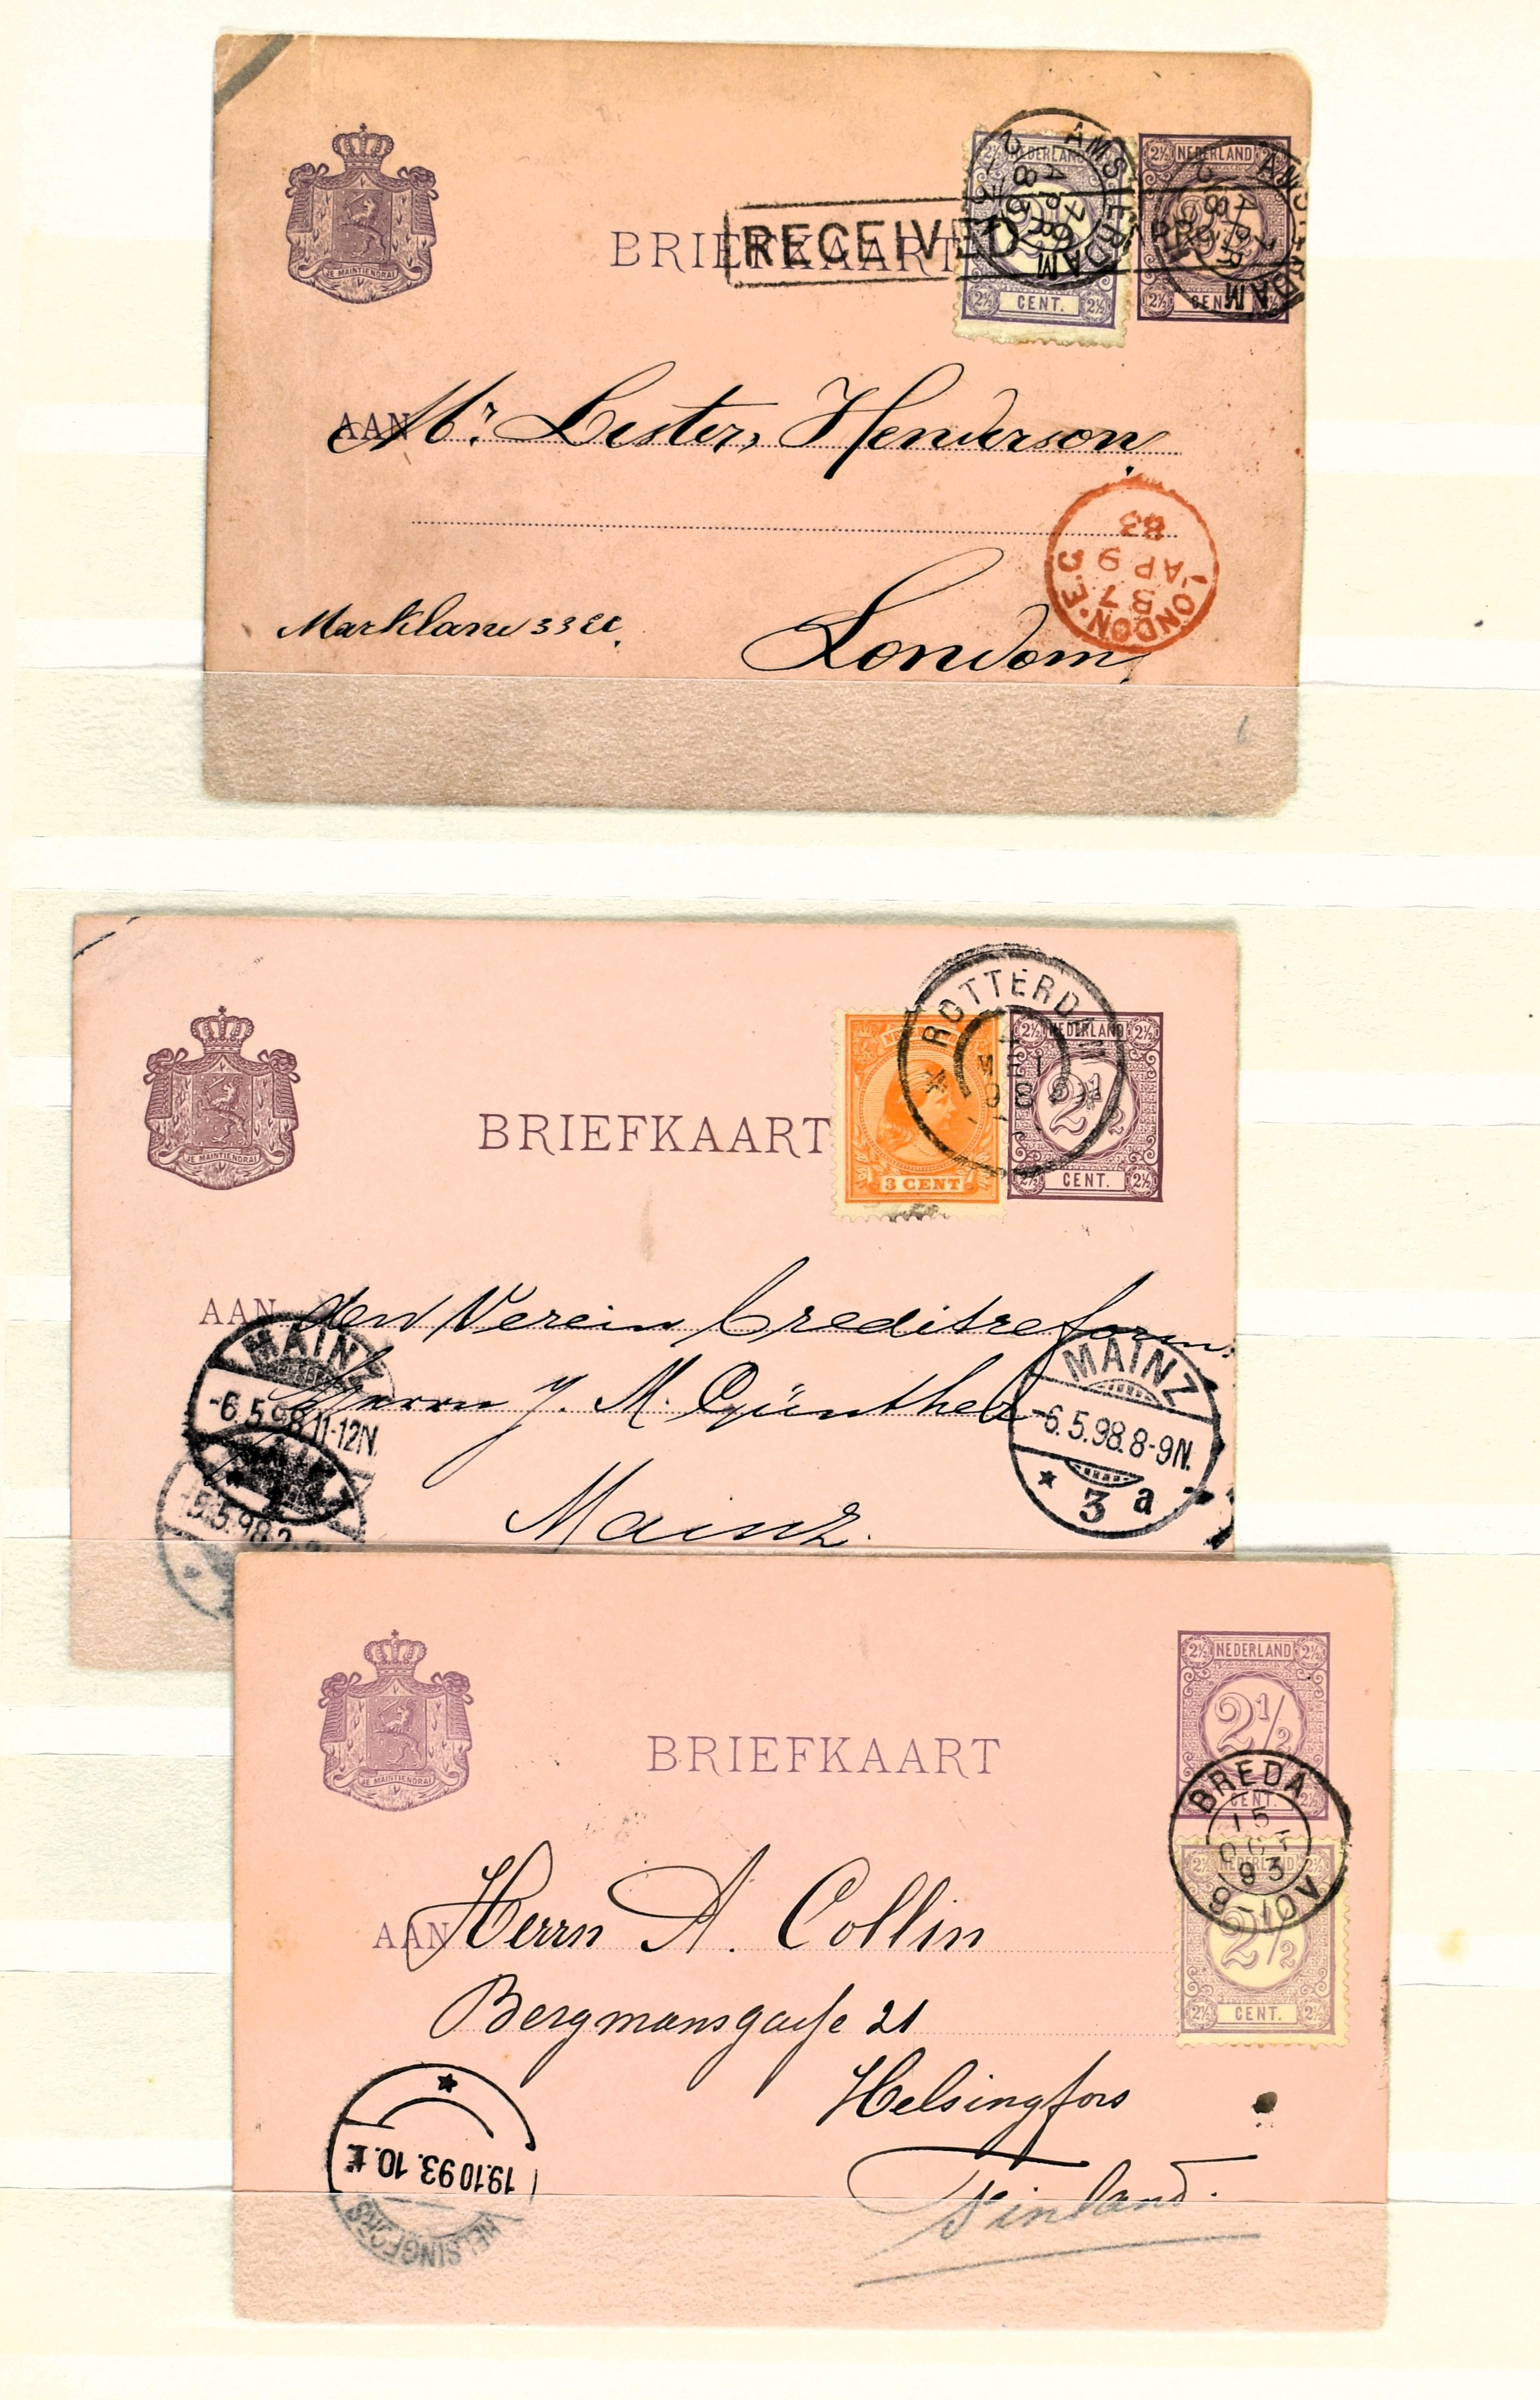 JE MAINTIENDRAI
BRIEFKAART
RECEIVED
NEDERLAND
CENT.
2½ NEDERLAND 2½
2½ CENT. 2½
AMSTERDAM
7 APR 83
AMSTERDAM
7 APR
AAN Mr. Lester, Henderson
LONDON. E.C
B7
AP 9
83
Marklane 33 EC.
London,
JE MAINTIENDRAI
BRIEFKAART
3 CENT
ROTTERDAM
2½ NEDERLAND 2½
2½
2½ CENT. 2½
AAN den Verein Creditreform.
Herrn J. M. Günther
Mainz.
MAINZ
-6.5.98.11-12N.
MAINZ
-6.5.98.8-9N.
3 a
-5.5.98.
JE MAINTIENDRAI
BRIEFKAART
2½ NEDERLAND 2½
2½
CENT. 2½
BREDA
15
OCT
93
8-10V
NEDERLAND
2½
2½ CENT. 2½
AAN Herrn A. Collin
Bergmansgasse 21
Helsingfors
Finland.
19.10 93. 10.
HELSINGFORS